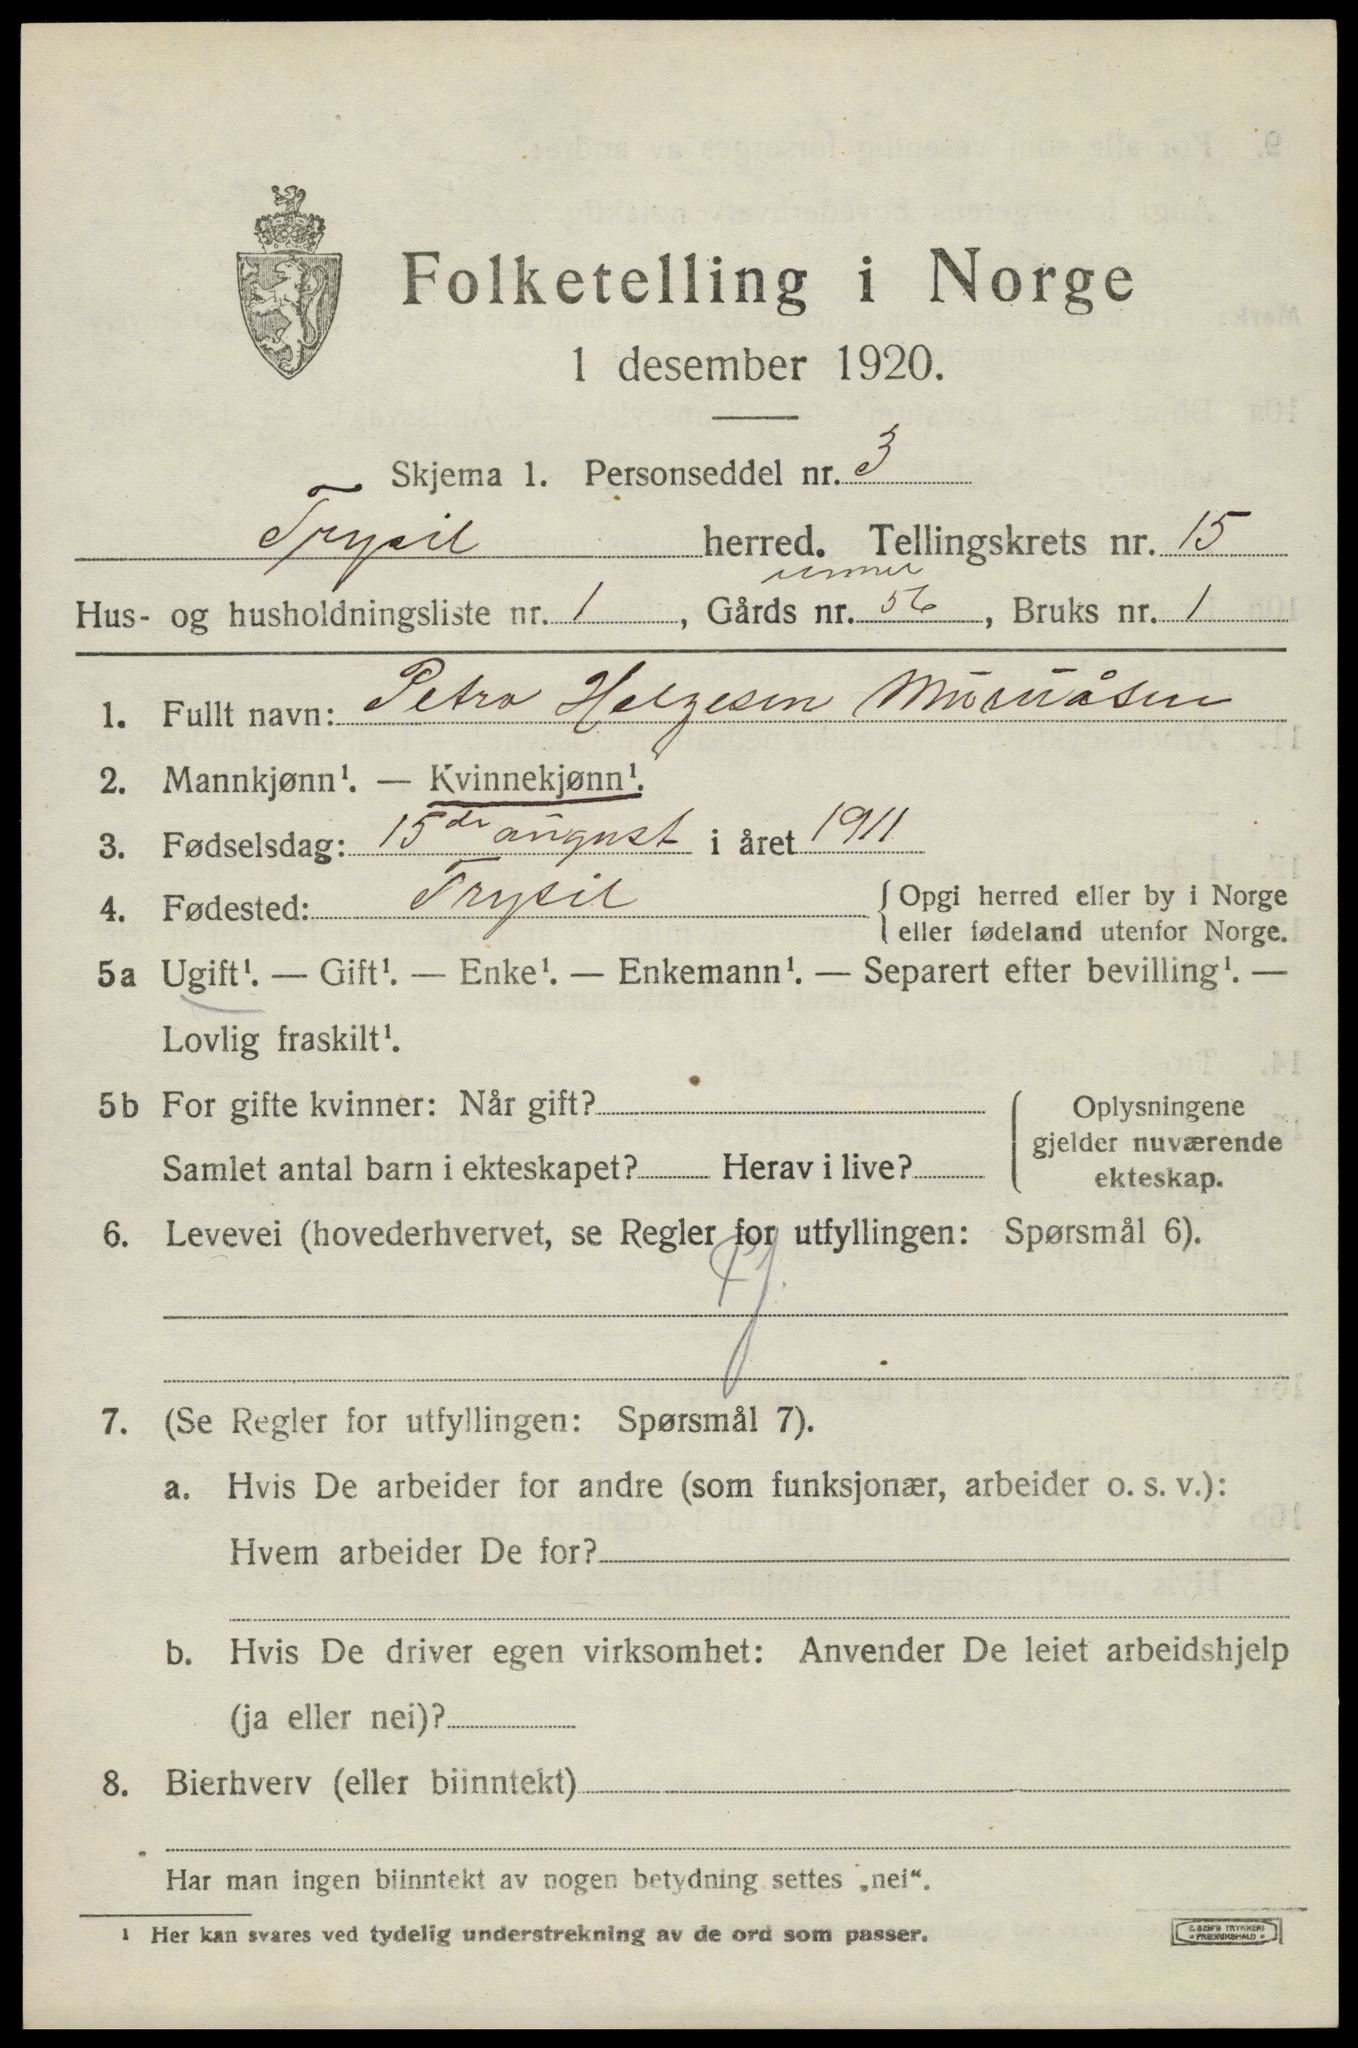 Folketelling i Norge
1 desember 1920.
Skjema 1. Personseddel nr. 3
Trysil herred. Tellingskrets nr. 15
under
Hus- og husholdningsliste nr. 1, Gårds nr. 56, Bruks nr. 1
1. Fullt navn: Petra Helgesen
2. Mannkjønn¹. — Kvinnekjønn¹.
3. Fødselsdag: 15de august i året 1911
4. Fødested: Trysil {Opgi herred eller by i Norge
eller fødeland utenfor Norge.
5a Ugift¹. — Gift¹. — Enke¹. — Enkemann¹. — Separert efter bevilling¹. —
Lovlig fraskilt¹.
5b For gifte kvinner: Når gift? {Oplysningene
gjelder nuværende
Samlet antal barn i ekteskapet? Herav i live? ekteskap.
6. Levevei (hovederhvervet, se Regler for utfyllingen: Spørsmål 6).
7. (Se Regler for utfyllingen: Spørsmål 7).
a. Hvis De arbeider for andre (som funksjonær, arbeider o. s. v.):
Hvem arbeider De for?
b. Hvis De driver egen virksomhet: Anvender De leiet arbeidshjelp
(ja eller nei)?
8. Bierhverv (eller biinntekt)
Har man ingen biinntekt av nogen betydning settes „nei“.
¹ Her kan svares ved tydelig understrekning av de ord som passer.
TRYKKERI
FREDRIKSHALD